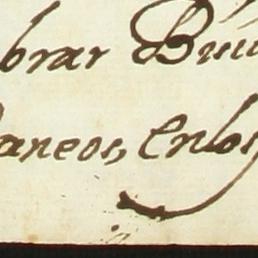 brar Buu
aneos, Enlos